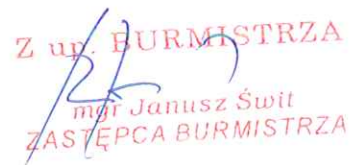 Z up. BURMISTRZA
mgr Janusz Świt
ZASTĘPCA BURMISTRZA